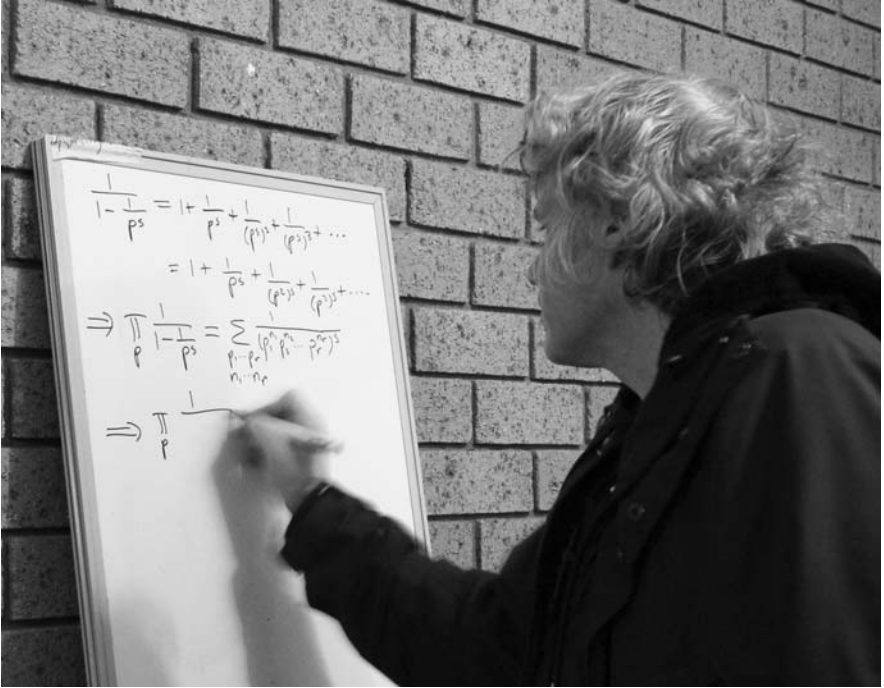 1/(1 - 1/p^s) = 1 + 1/p^s + 1/(p^s)^2 + 1/(p^s)^3 + ...
= 1 + 1/p^s + 1/(p^2)^s + 1/(p^3)^s + ....
⇒ ∏_p 1/(1 - 1/p^s) = ∑_{p_1...p_r n_1...n_r} 1/(p_1^{n_1} p_2^{n_2} ... p_r^{n_r})^s
⇒ ∏_p 1